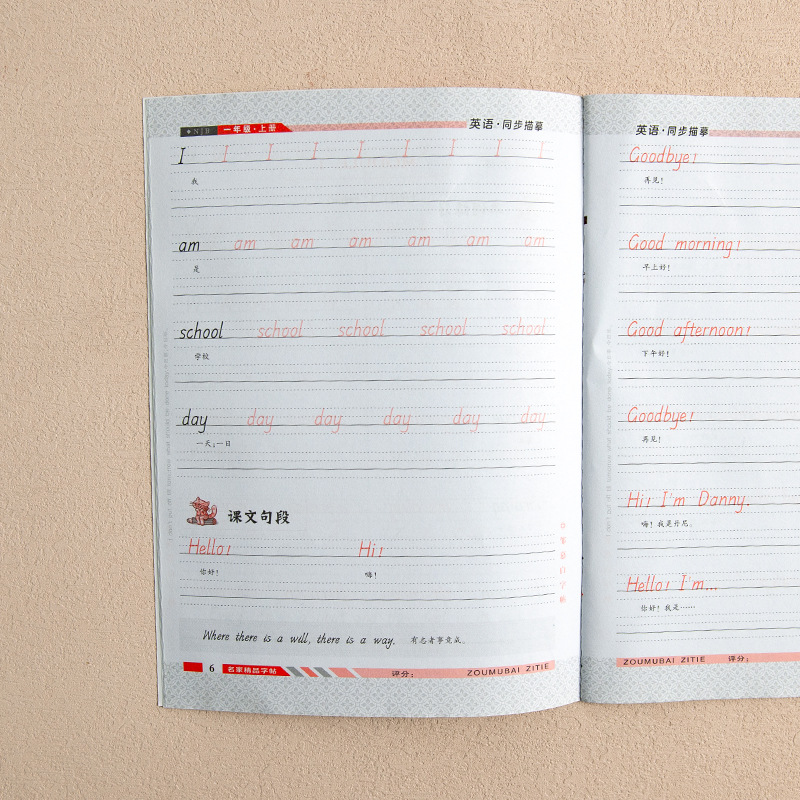 NJB 一年级·上册 英语·同步描摹
I I I I I I I I I
我
am am am am am am am
是
school school school school school
学校
day day day day day day
一天;一日
课文句段
Hello! Hi!
你好! 嗨!
Where there is a will, there is a way. 有志者事竟成。
6 名家精品字帖 评分: ZOUMUBAI ZITIE
英语·同步描摹
Goodbye!
再见!
Good morning!
早上好!
Good afternoon!
下午好!
Goodbye!
再见!
Hi! I'm Danny.
嗨! 我是丹尼。
Hello! I'm...
你好! 我是……
ZOUMUBAI ZITIE 评分: